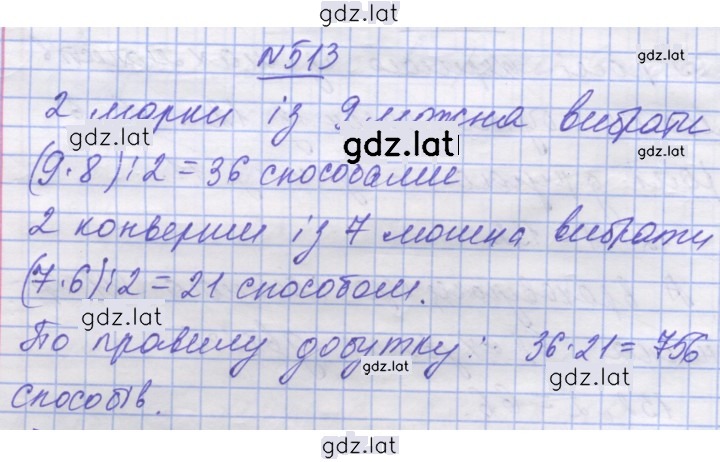 gdz.lat
N513
gdz.lat
2 марки із 9 можна вибрати
gdz.lat
gdz.lat
(9·8):2=36 способами
2 конверти із 7 можна вибрати
(7·6):2=21 способом.
gdz.lat
По правилу добутку: 36·21=756
gdz.lat
gdz.lat
способів.
gdz.lat